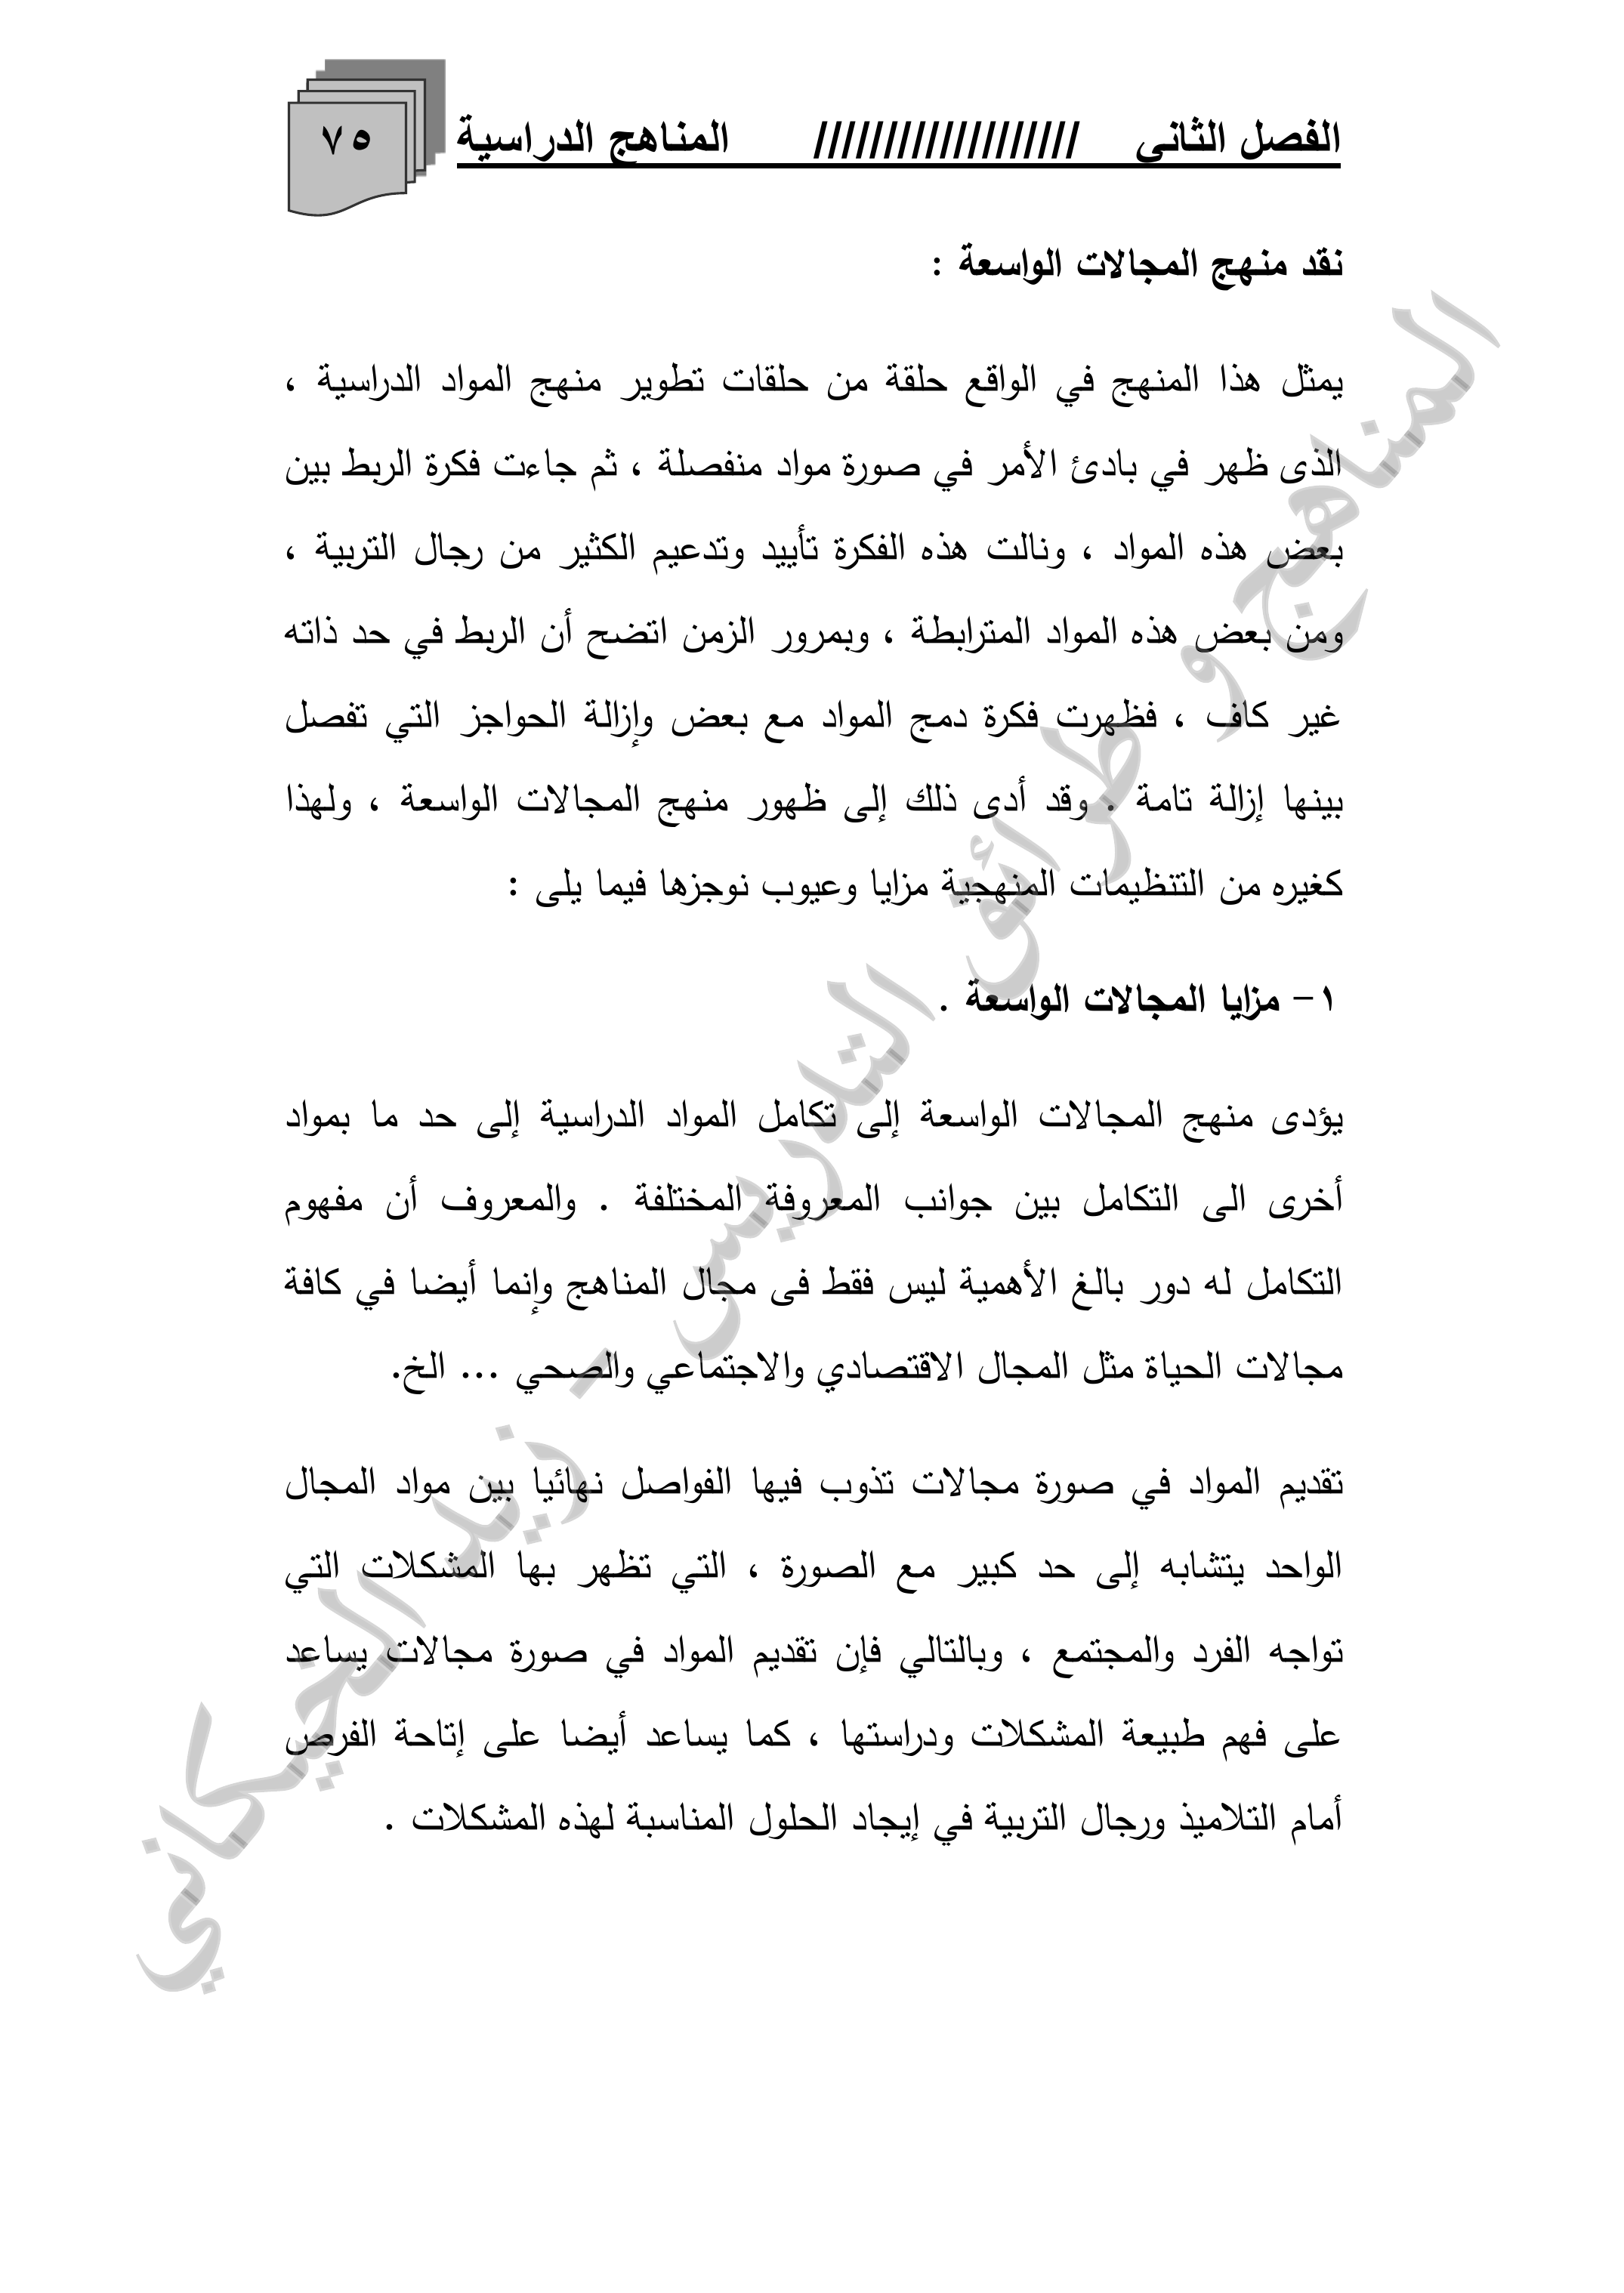 الفصل الثاني /////////////////// المناهج الدراسية ٧٥
نقد منهج المجالات الواسعة :
يمثل هذا المنهج في الواقع حلقة من حلقات تطوير منهج المواد الدراسية ،
الذى ظهر في بادئ الأمر في صورة مواد منفصلة ، ثم جاءت فكرة الربط بين
بعض هذه المواد ، ونالت هذه الفكرة تأييد وتدعيم الكثير من رجال التربية ،
ومن بعض هذه المواد المترابطة ، وبمرور الزمن اتضح أن الربط في حد ذاته
غير كاف ، فظهرت فكرة دمج المواد مع بعض وإزالة الحواجز التي تفصل
بينها إزالة تامة . وقد أدى ذلك إلى ظهور منهج المجالات الواسعة ، ولهذا
كغيره من التنظيمات المنهجية مزايا وعيوب نوجزها فيما يلى :
١- مزايا المجالات الواسعة .
يؤدى منهج المجالات الواسعة إلى تكامل المواد الدراسية إلى حد ما بمواد
أخرى الى التكامل بين جوانب المعروفة المختلفة . والمعروف أن مفهوم
التكامل له دور بالغ الأهمية ليس فقط فى مجال المناهج وإنما أيضا في كافة
مجالات الحياة مثل المجال الاقتصادي والاجتماعي والصحي ... الخ.
تقديم المواد في صورة مجالات تذوب فيها الفواصل نهائيا بين مواد المجال
الواحد يتشابه إلى حد كبير مع الصورة ، التي تظهر بها المشكلات التي
تواجه الفرد والمجتمع ، وبالتالي فإن تقديم المواد في صورة مجالات يساعد
على فهم طبيعة المشكلات ودراستها ، كما يساعد أيضا على إتاحة الفرص
أمام التلاميذ ورجال التربية في إيجاد الحلول المناسبة لهذه المشكلات .
المناهج و طرائق التدريس - زيد الخيكاني